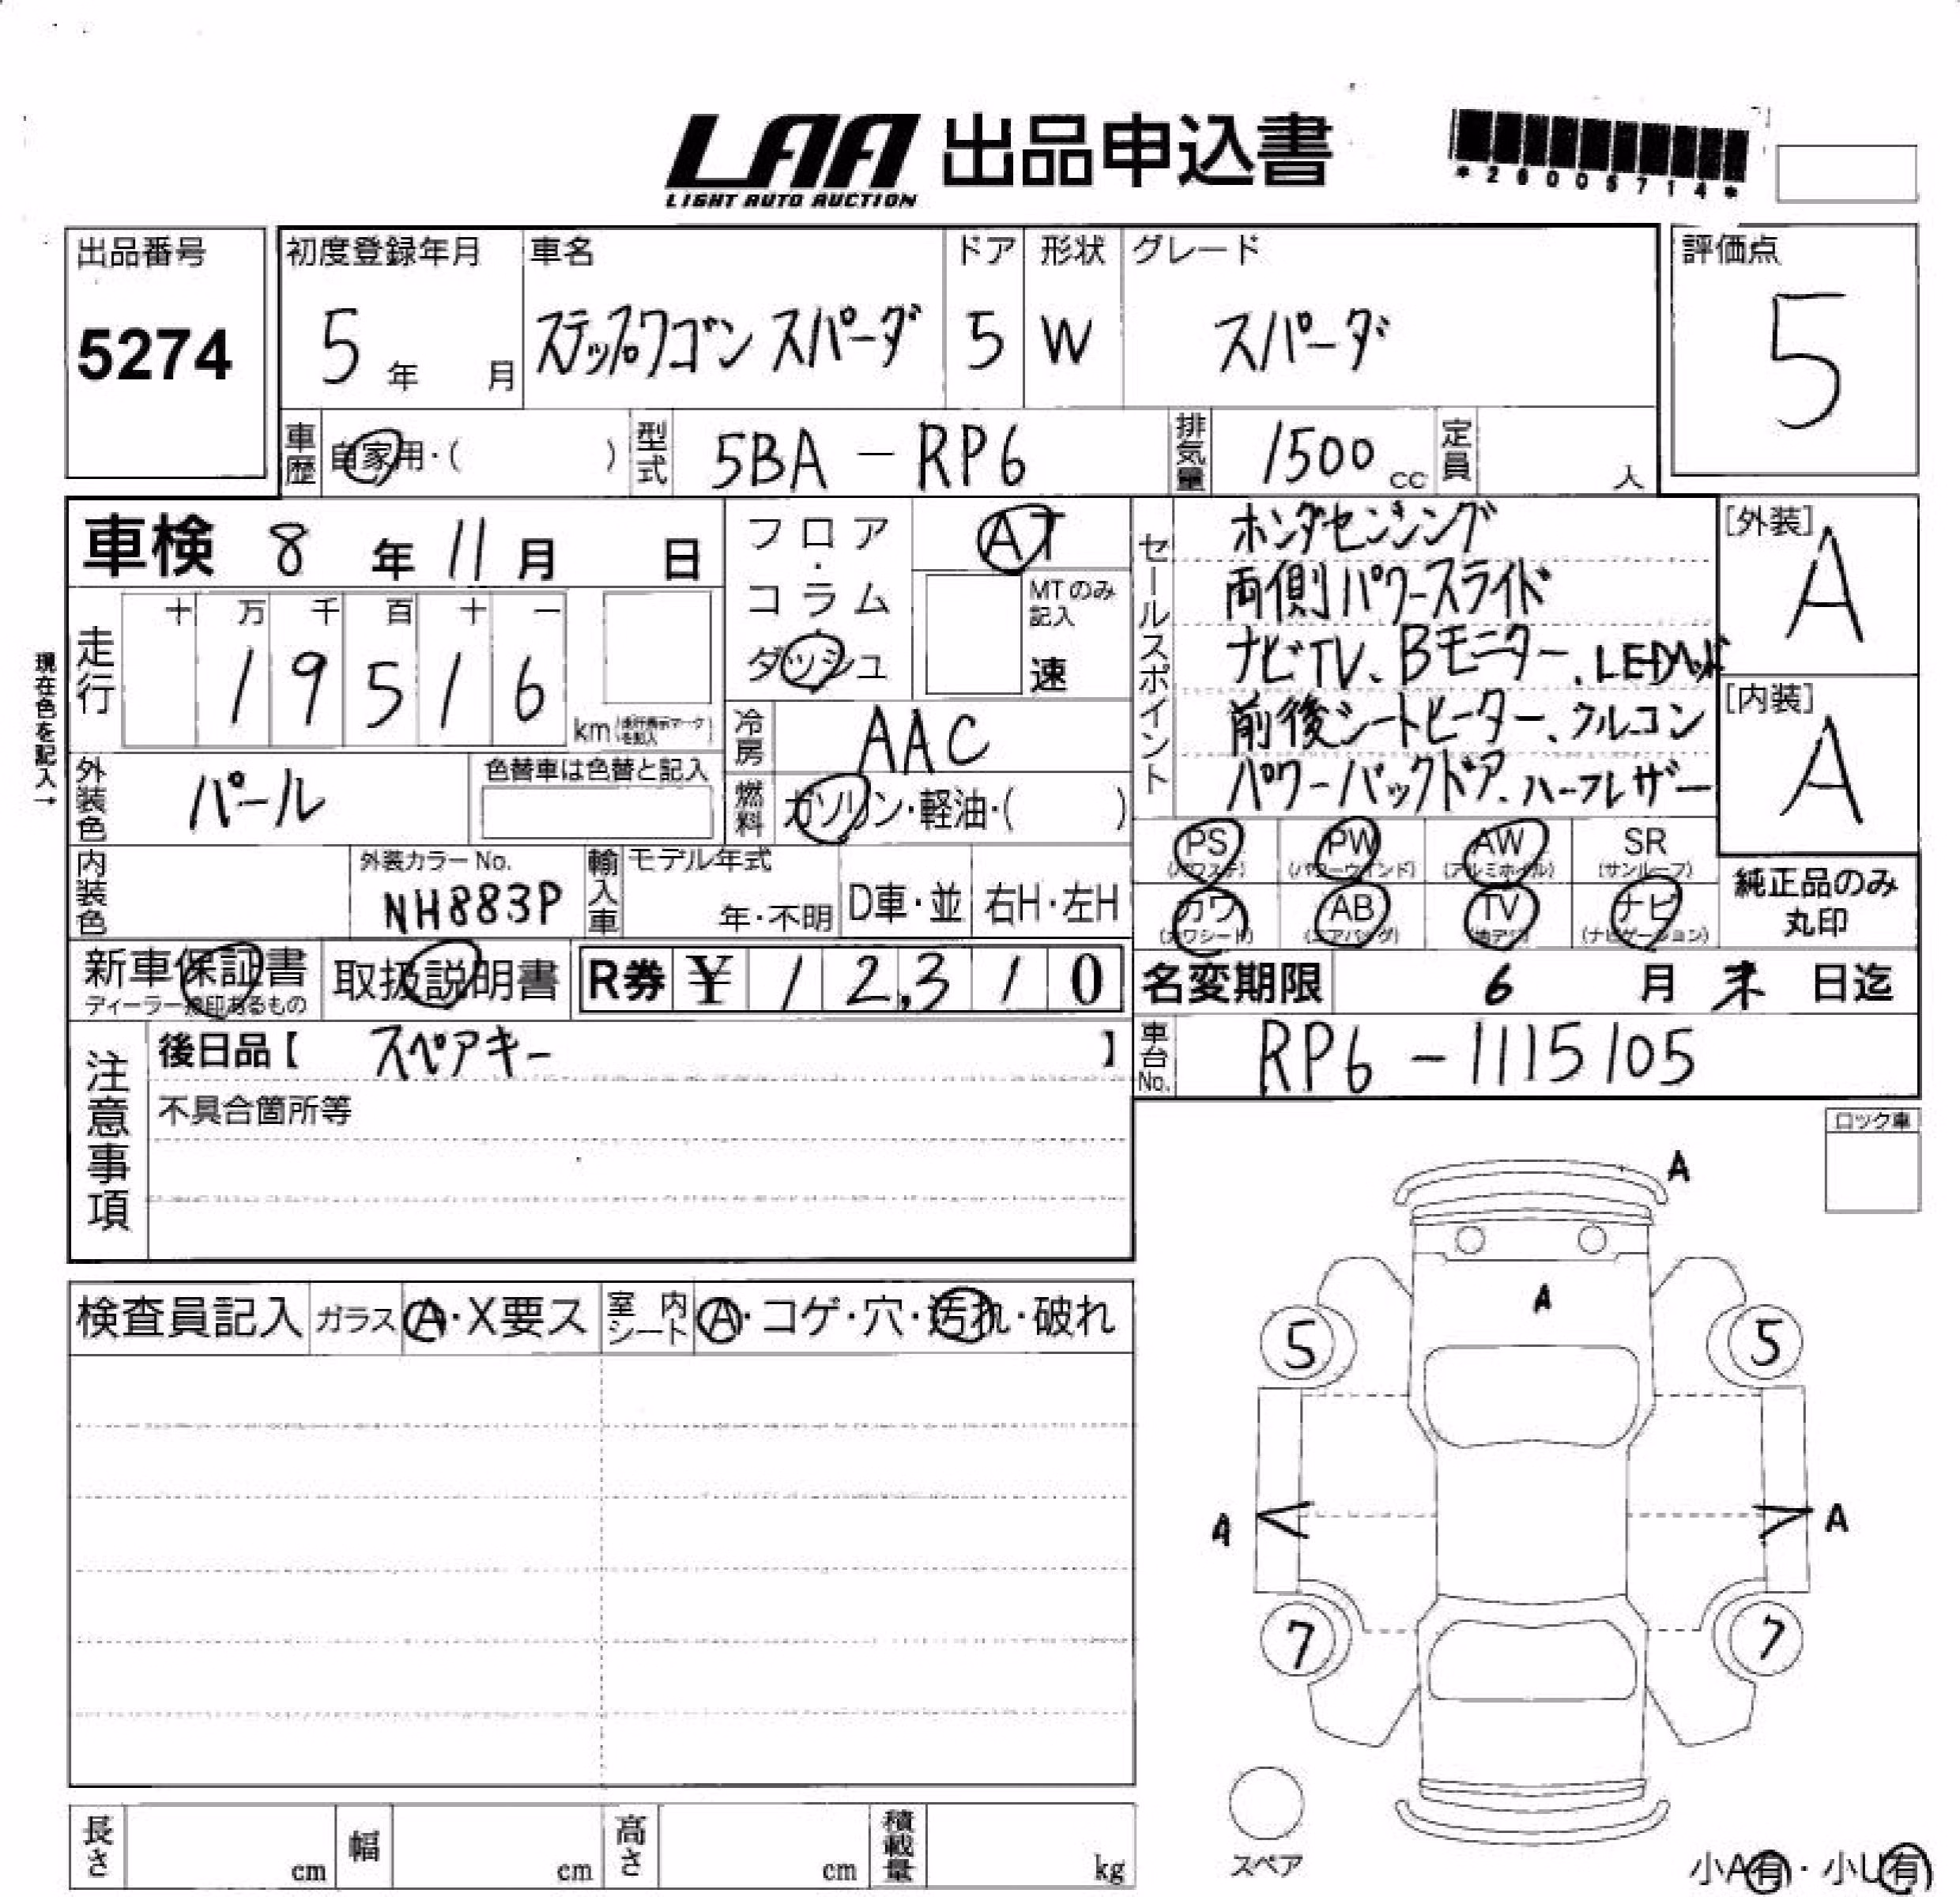 LAA 出品申込書
LIGHT AUTO AUCTION
*26005714*
出品番号
5274
初度登録年月
5年 月
車名
ステップワゴン スパーダ
ドア
5
形状
W
グレード
スパーダ
評価点
5
車歴 自家用・( )
型式 5BA-RP6
排気量 1500 cc
定員 人
車検 8年11月 日
現在色を記入→
走行
十 万 千 百 十 一
1 9 5 1 6
km (走行表示マークを記入)
フロア・コラム・ダッシュ
AT
MTのみ記入
速
冷房 AAC
燃料 ガソリン・軽油・( )
セールスポイント
ホンダセンシング
両側パワースライド
ナビTV、Bモニター、LEDヘッド
前後シートヒーター、クルコン
パワーバックドア、ハーフレザー
[外装]
A
[内装]
A
外装色 パール
色替車は色替と記入
内装色
外装カラーNo.
NH883P
輸入車
モデル年式
年・不明
D車・並
右H・左H
PS (パワステ)
PW (パワーウインド)
AW (アルミホイル)
SR (サンルーフ)
カワ (カワシート)
AB (エアバッグ)
TV (地デジ)
ナビ (ナビゲーション)
純正品のみ丸印
新車保証書
ディーラー捺印あるもの
取扱説明書
R券 ¥ 12,310
名変期限 6月末日迄
車台No. RP6-1115105
注意事項
後日品【 スペアキー 】
不具合箇所等
ロック車
検査員記入
ガラス A・X要ス
室内シート A・コゲ・穴・汚れ・破れ
A
A
5
5
A
A
7
7
スペア
長さ cm
幅 cm
高さ cm
積載量 kg
小A有・小U有